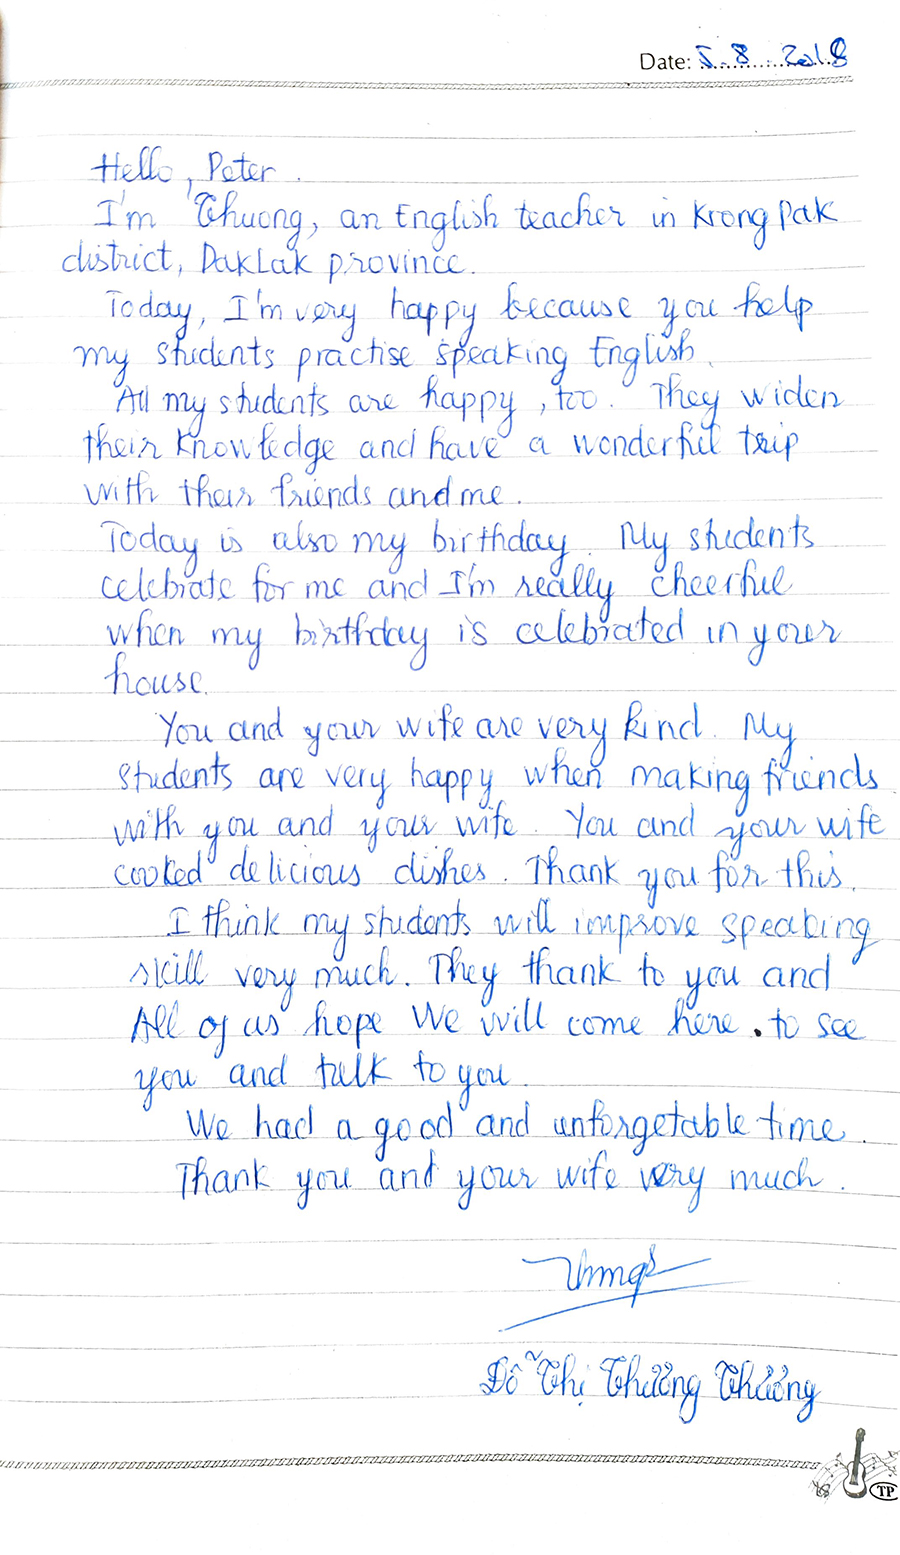 Date: 5..8....2018
Hello, Peter.
I'm Thuong, an English teacher in Krong Pak
district, DakLak province.
Today, I'm very happy because you help
my students practise speaking English.
All my students are happy, too. They widen
their knowledge and have a wonderful trip
with their friends and me.
Today is also my birthday. My students
celebrate for me and I'm really cheerful
when my birthday is celebrated in your
house.
You and your wife are very kind. My
students are very happy when making friends
with you and your wife. You and your wife
cooked delicious dishes. Thank you for this.
I think my students will improve speaking
skill very much. They thank to you and
All of us hope We will come here. to see
you and talk to you.
We had a good and unforgetable time.
Thank you and your wife very much.
Đỗ Thị Thương Thương
TP